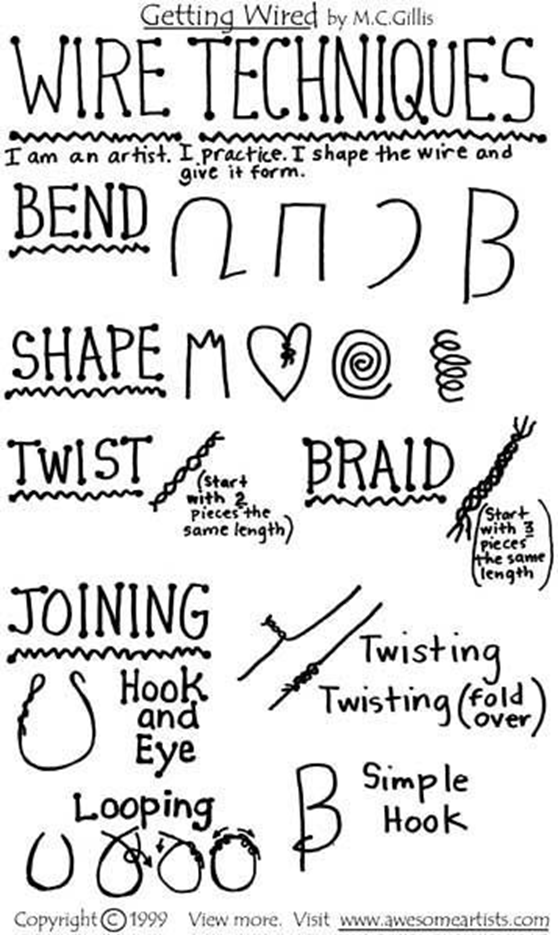 Getting Wired by M.C.Gillis
WIRE TECHNIQUES
I am an artist. I practice. I shape the wire and
give it form.
BEND
SHAPE
TWIST
(Start
with 2
pieces the
same length)
BRAID
(Start
with 3
pieces
the same
length)
JOINING
Twisting
Twisting (fold
over)
Hook
and
Eye
Simple
Hook
Looping
Copyright © 1999 View more. Visit www.awesomeartists.com